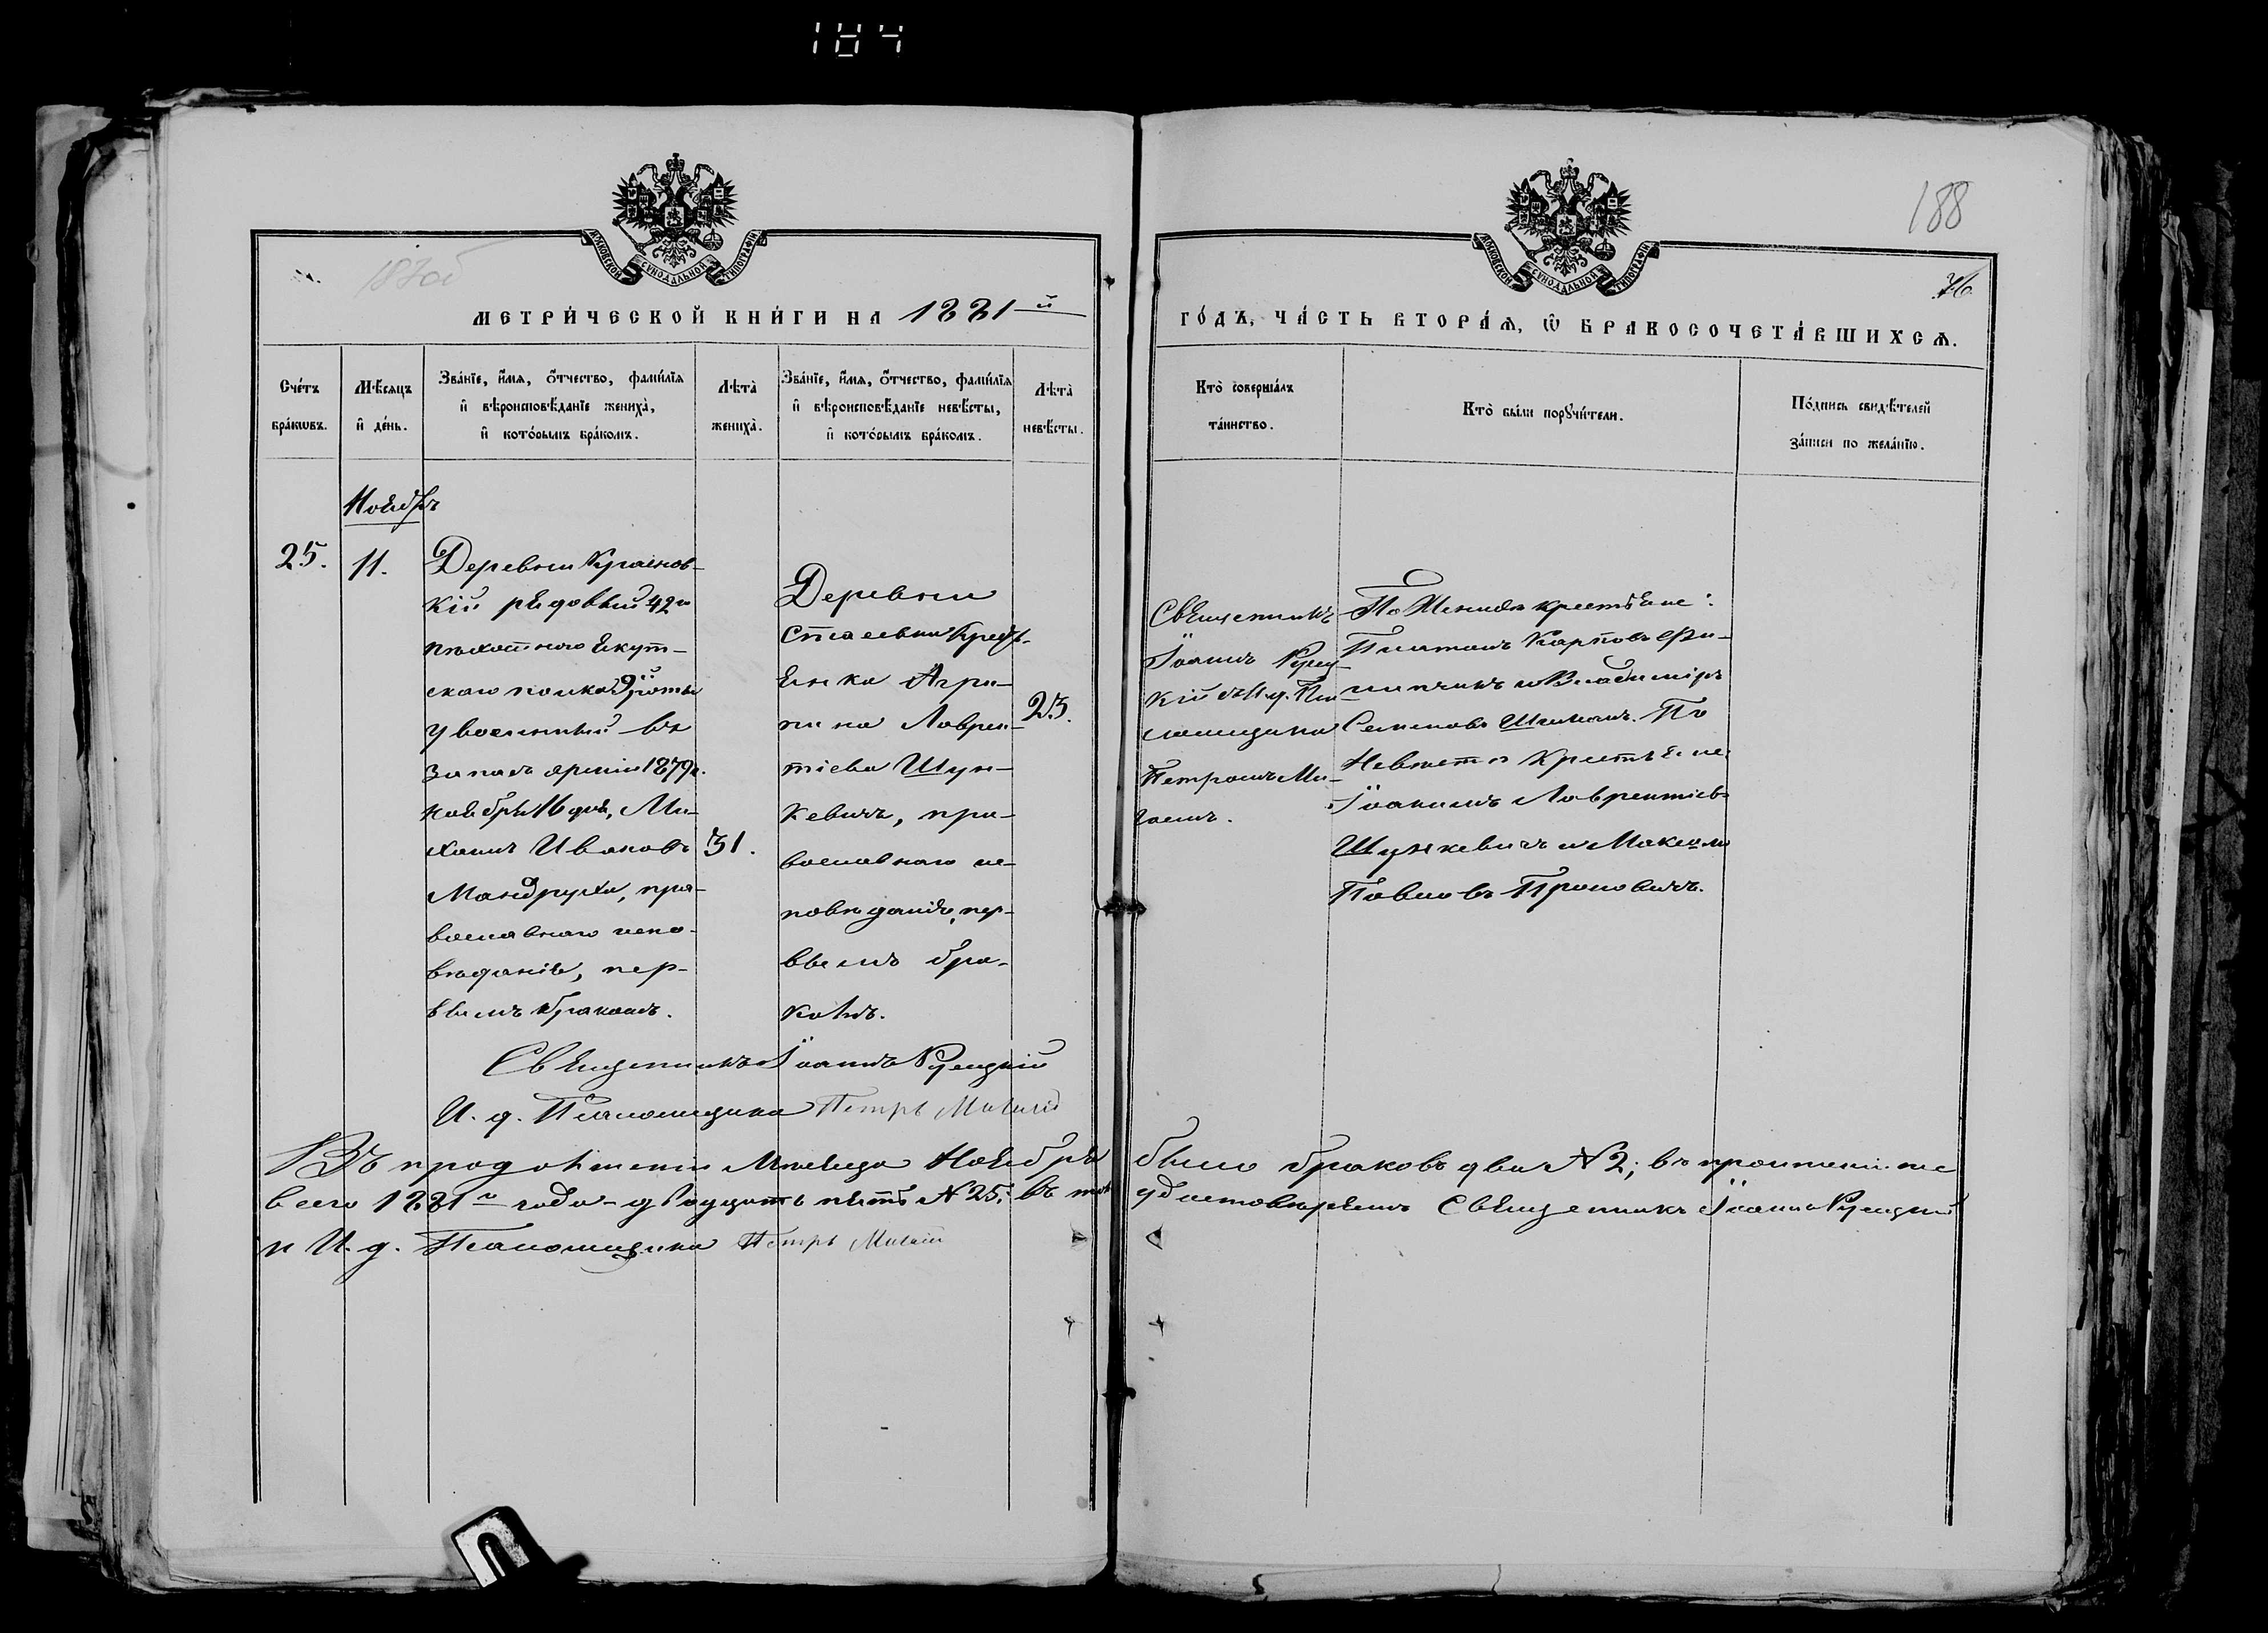 184
188
76
МОСКОВСКОЙ СѴНОДАЛЬНОЙ ТИПОГРАФІИ
МОСКОВСКОЙ СѴНОДАЛЬНОЙ ТИПОГРАФІИ
МЕТРИ́ЧЕСКОЙ КНИ́ГИ НА 1881 й
ГО́ДЪ, ЧА́СТЬ ВТОРА́Ѧ, Ѽ БРАКОСОЧЕТА́ВШИХСѦ.
Сче́тъ
бра́кωвъ.
Мѣ́сяцъ
и҆ де́нь.
Зва́нїе, и҆́мѧ, ѻ҆́тчество, фами́лїѧ
и҆ вѣроисповѣ́данїе жениха̀,
и҆ кото́рымъ бра́комъ.
Лѣта̀
жениха̀.
Зва́нїе, и҆́мѧ, ѻ҆́тчество, фами́лїѧ
и҆ вѣроисповѣ́данїе невѣ́сты,
и҆ кото́рымъ бра́комъ.
Лѣта̀
невѣ́сты.
Кто̀ соверша́лъ
та́инство.
Кто̀ бы́ли порꙋчи́тели.
По́дпись свидѣ́телей
за́писи по жела́нїю.
Ноябрь
25.
11.
Деревни Краснов-
кій рядовый 42го
пѣхотнаго Якут-
скаго полка 9й роты
уволенный въ
запасъ арміи 1879 г.
ноября 16 дня, Ми-
хаилъ Ивановъ
Мандруха, пра-
вославнаго испо-
вѣданія, пер-
вымъ бракомъ.
31.
Деревни
Стаевки Кресть-
янка Агри-
пина Лаврен-
тіева Шун-
кевичъ, пра-
вославнаго ис-
повѣданія, пер-
вымъ бра-
комъ.
23.
Священникъ
Іоаннъ Руец-
кій съ И. д. Пса-
ломщика
Петромъ Ми-
По Женихѣ крестьяне:
Платонъ Карповъ Фи-
липчикъ и Владиміръ
Семеновъ Шиманъ. По
Невѣстѣ Крестьяне:
Іоакимъ Лаврентіевъ
Шункевичъ и Максимъ
Павловъ Прановичъ.
Священникъ Іоаннъ Руецкій
И. д. Псаломщика Петръ
Въ продолженіи Мѣсяца Ноября было браковъ два № 2; въ продолженіи же
всего 1881го года - двадцать пять № 25; въ томъ удостовѣряемъ Священникъ Іоаннъ Руецкій
и И. д. Псаломщика Петръ